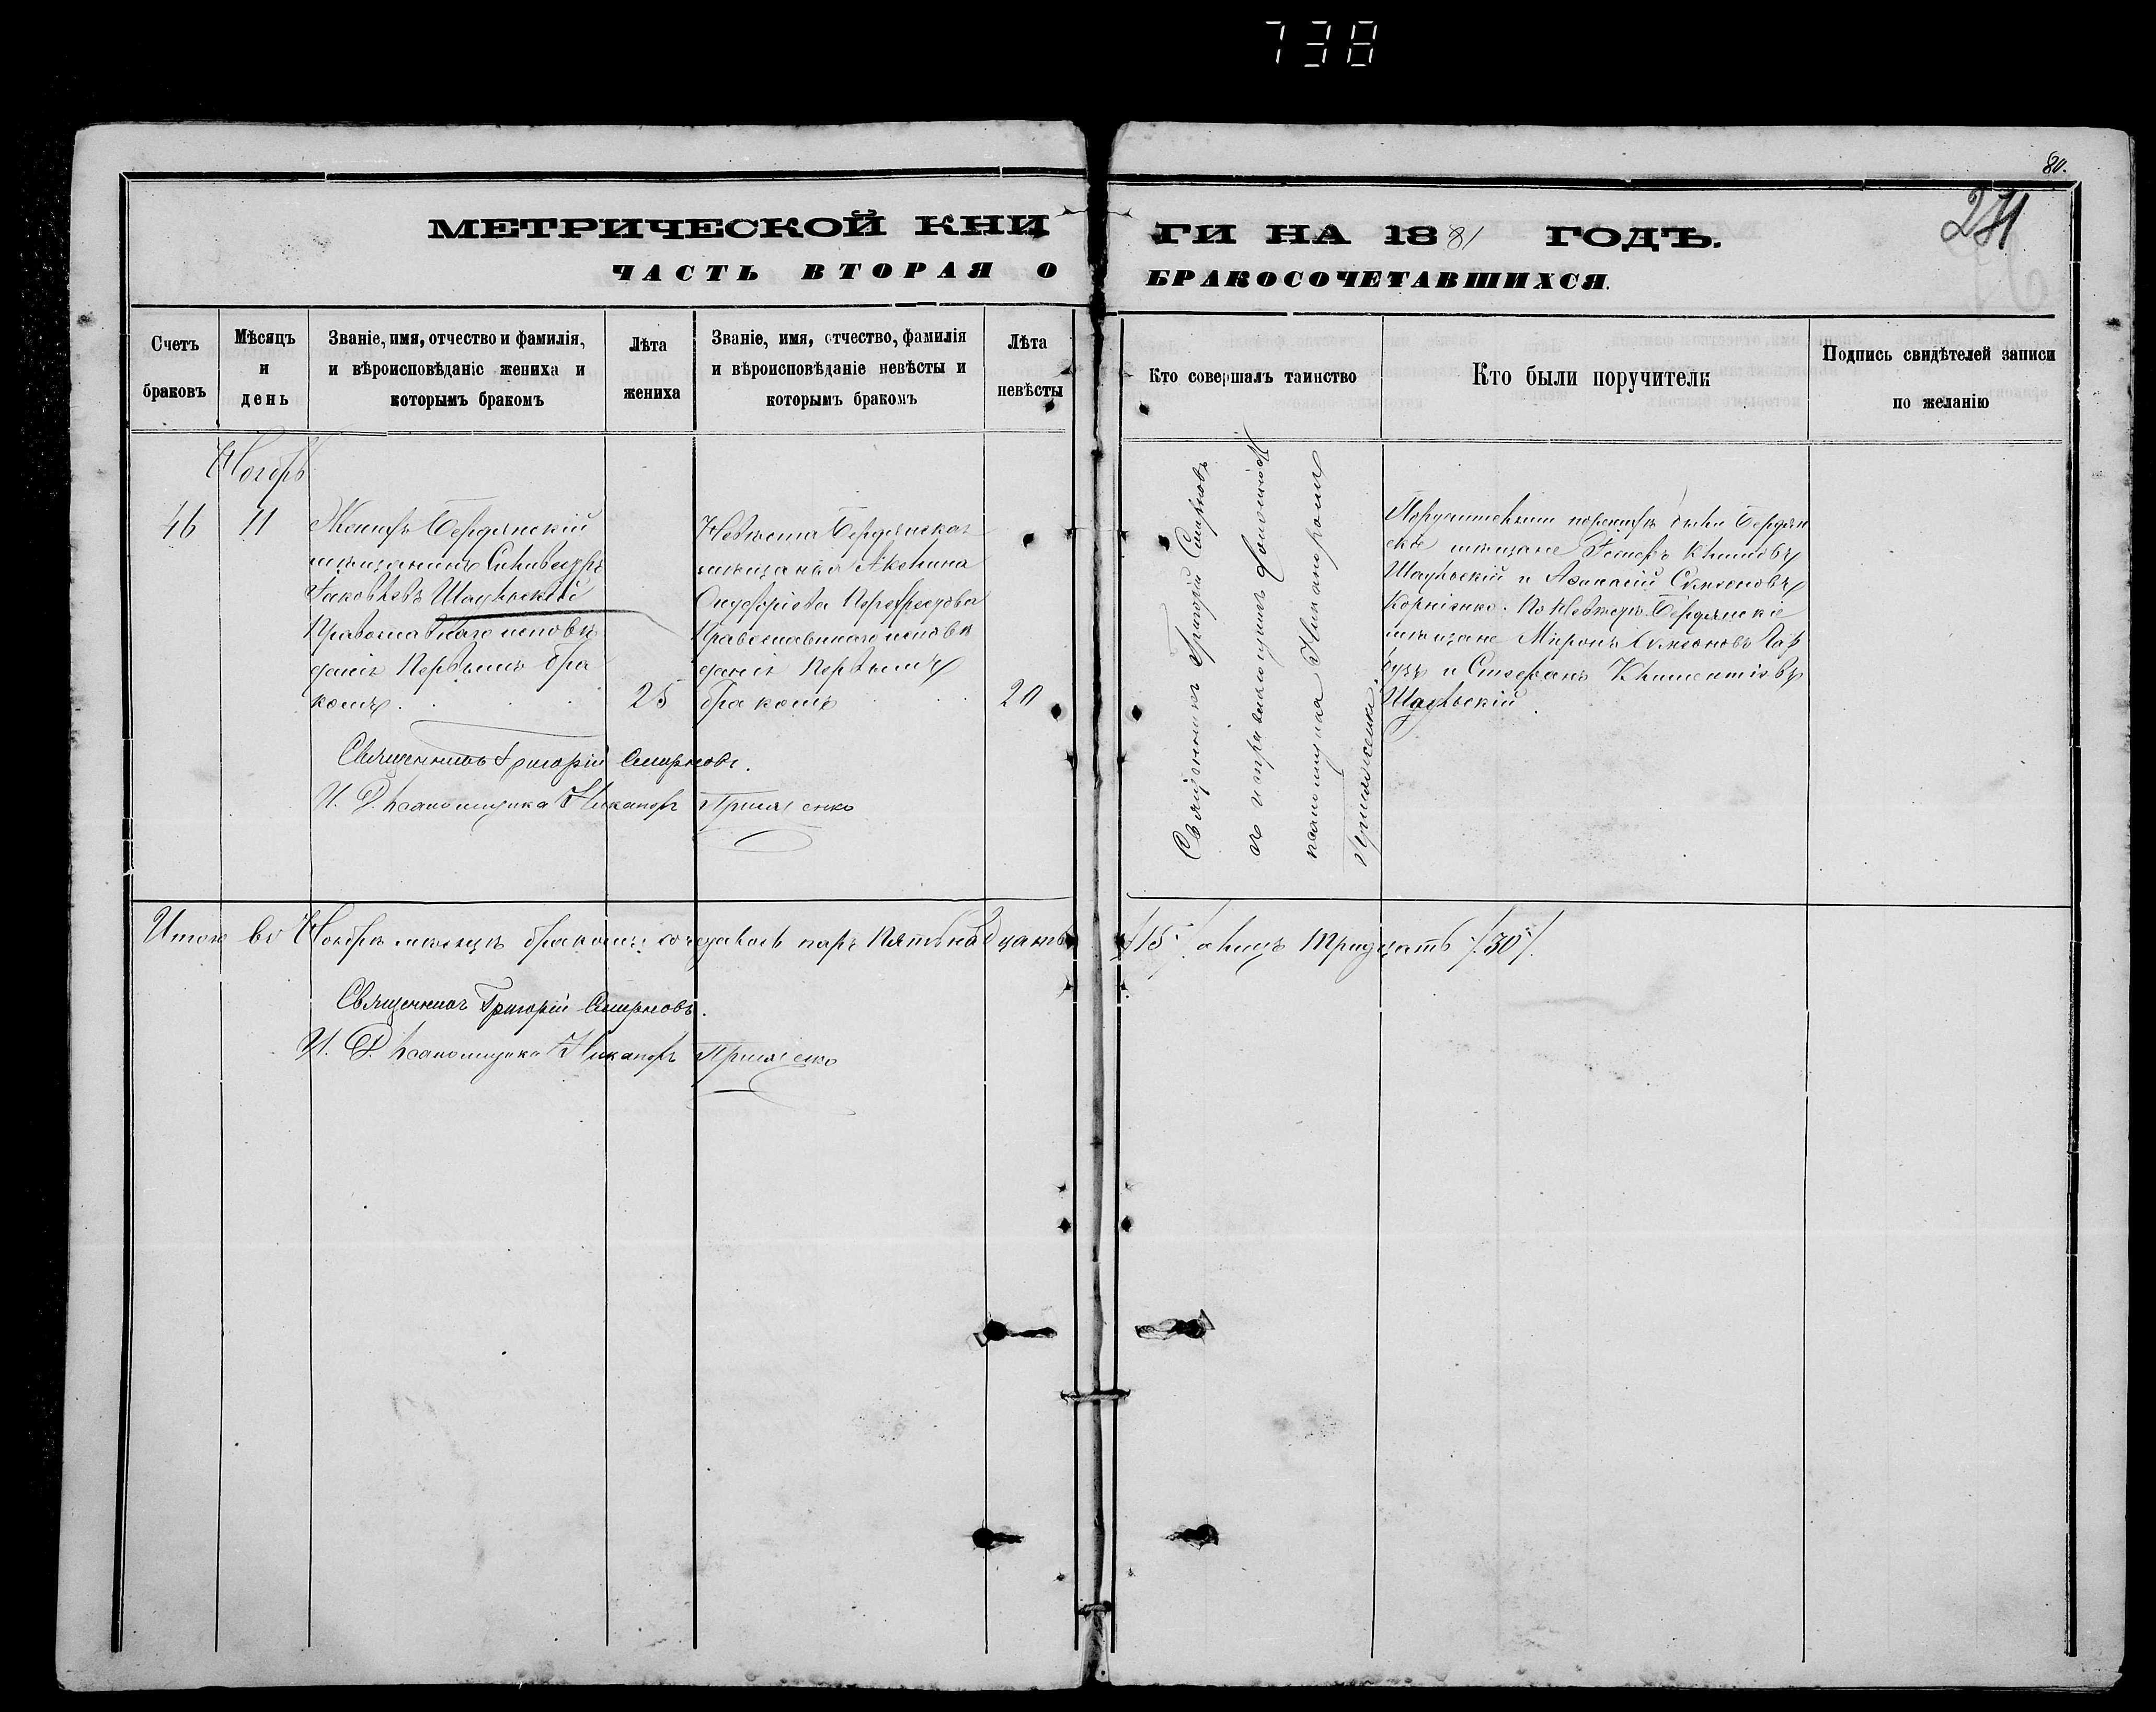 738
80.
271
МЕТРИЧЕСКОЙ КНИ ГИ НА 1881 ГОДЪ.
ЧАСТЬ ВТОРАЯ О БРАКОСОЧЕТАВШИХСЯ.
Счетъ браковъ
Мѣсяцъ и день
Званіе, имя, отчество и фамилія,
и вѣроисповѣданіе жениха и
которымъ бракомъ
Лѣта жениха
Званіе, имя, отчество, фамилія
и вѣроисповѣданіе невѣсты и
которымъ бракомъ
Лѣта невѣсты
Кто совершалъ таинство
Кто были поручители
Подпись свидѣтелей записи
по желанію
Ноябрь
46
11
Женихъ Бердянскій
мѣщанинъ Сильвестръ
Іаковлевъ Шаульскій
Православнаго исповѣ
данія Первымъ бра
комъ
25
Невѣста Бердянская
мѣщанка Акилина
Онуфріева
Православнаго исповѣ
данія Первымъ
бракомъ
20
Священникъ Григорій Смирновъ
съ и. д.
псаломщика Никаноромъ
Поручителями по женихѣ были Бердян
скіе мѣщане
Шаульскій и Аѳанасій Симеоновъ
Корніенко. По невѣстѣ Бердянскіе
мѣщане Миронъ Симеоновъ
и Стефанъ Климентіевъ
Шаульскій.
Священникъ Григорій Смирновъ.
И. Д. псаломщика Никаноръ
Итого въ Ноябрѣ мѣсяцѣ бракомъ сочеталось паръ Пятьнадцать /15/. а лицъ Тридцать /30/.
Священникъ Григорій Смирновъ.
И. Д. псаломщика Никаноръ